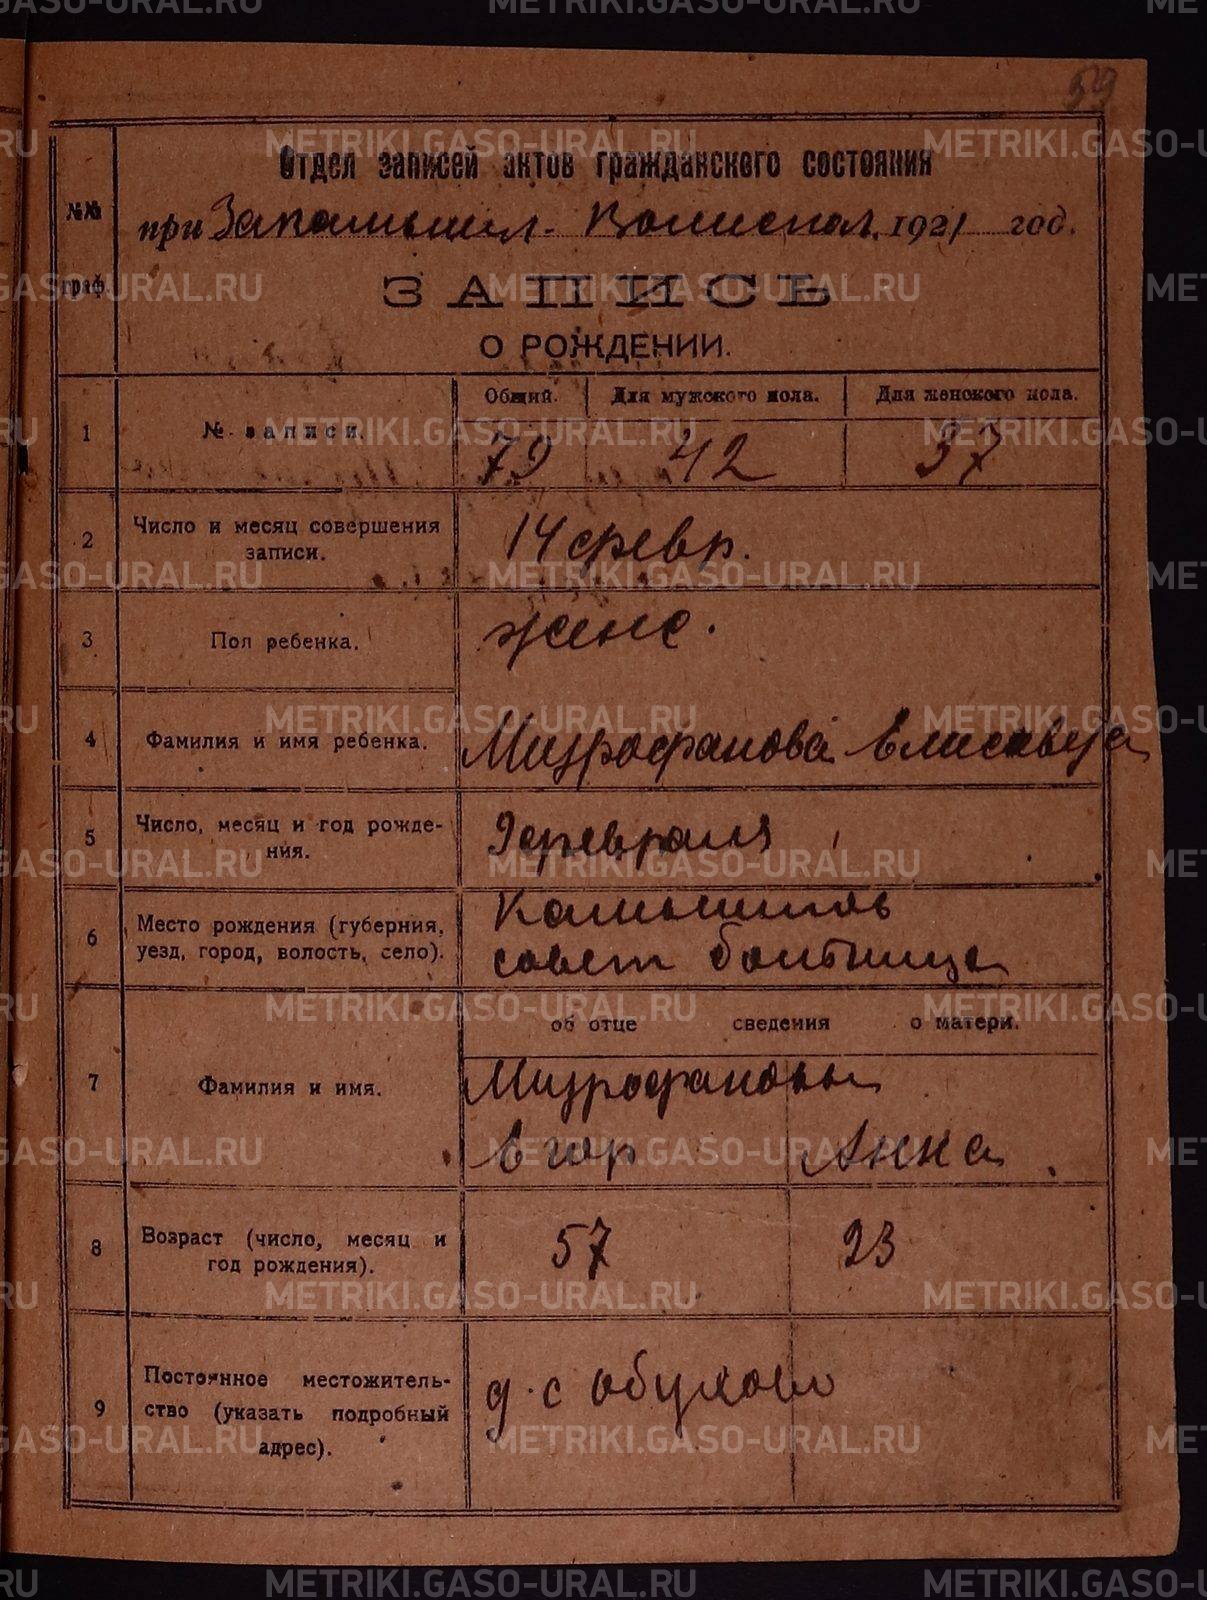 59
Отдел записей актов гражданского состояния
№№ граф.
при Закамышл. Волиспол. 1921 год.
ЗАПИСЬ
О РОЖДЕНИИ.
Общий. Для мужского пола. Для женского пола.
1 № записи. 79 42 37
2 Число и месяц совершения
записи. 14 февр.
3 Пол ребенка. женс.
4 Фамилия и имя ребенка. Митрофанова Елисавета
5 Число, месяц и год рожде-
ния. 9 февраля
6 Место рождения (губерния,
уезд, город, волость, село). Камышлов
совет больница
об отце сведения о матери.
7 Фамилия и имя. Митрофановы
Егор Анна
8 Возраст (число, месяц и
год рождения). 57 23
9 Постоянное местожитель-
ство (указать подробный
адрес). д. с Обухово
METRIKI.GASO-URAL.RU